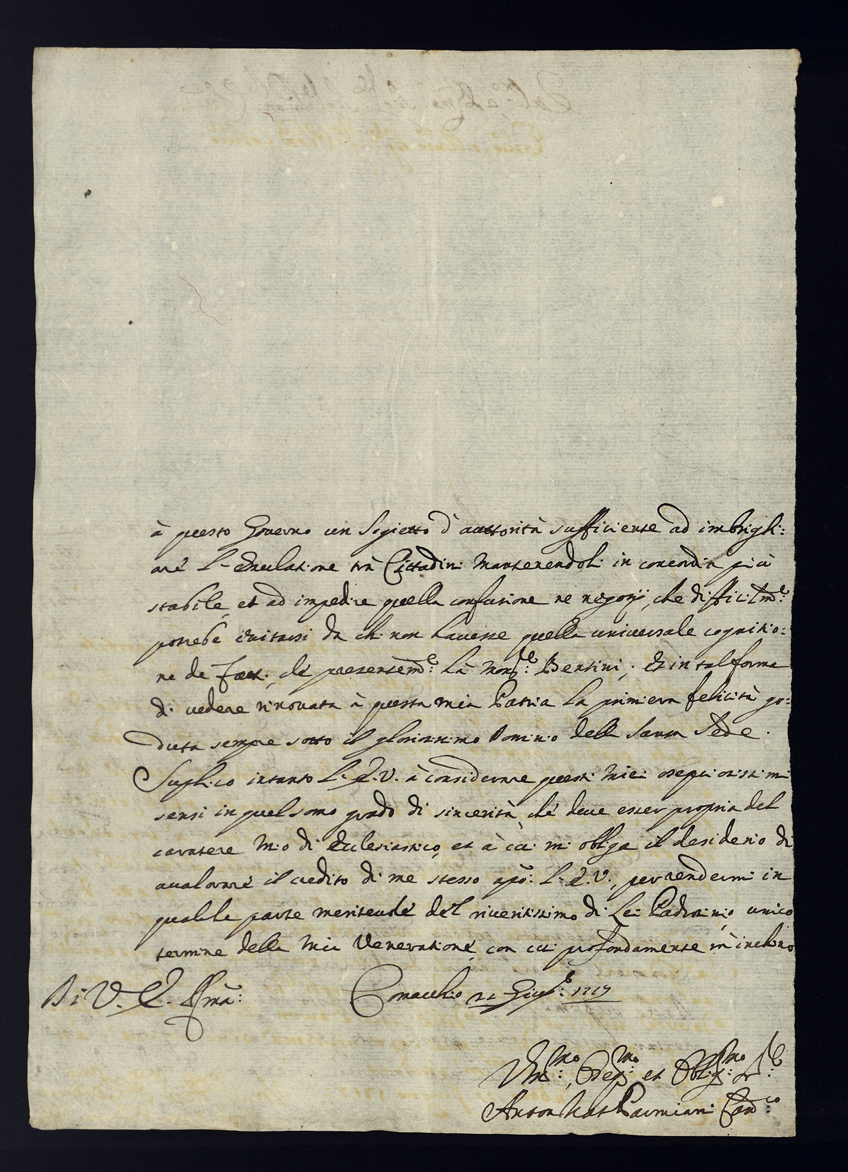 à questo Governo un Sogietto d'auttorità sufficiente ad imbrigli:
are l'Emulatione trà Cittadini mantenendoli in concordia più
stabile et ad impedire quella confusione ne negozj, che difficilm.e
potrebe evitarsi da chi non havesse quella universale cognitio:
ne de che presentem.e hà Bensini, et in tal forma
di vedere rinovata à questa mia Patria la primiera felicità go:
duta sempre sotto il gloriosissimo Dominio della Santa Sede.
Suplico intanto l'E.V. à considerare questi miei osequiosissimi
sensi in quel somo grado di sincerità che deve esser propria del
caratere mio di Ecclesiastico, et à cui mi obliga il desiderio di
avalorare il credito di me stesso apo: l'E.V., per rendermi in
qualche parte meritevole del riveritissimo di Lei Padrocinio, unico
termine della mia Veneratione, con cui profondamente m'inchino
Di V. E. Rma:
Comacchio 21 1717
Um.mo Dev.mo et Obblig.mo
Anton